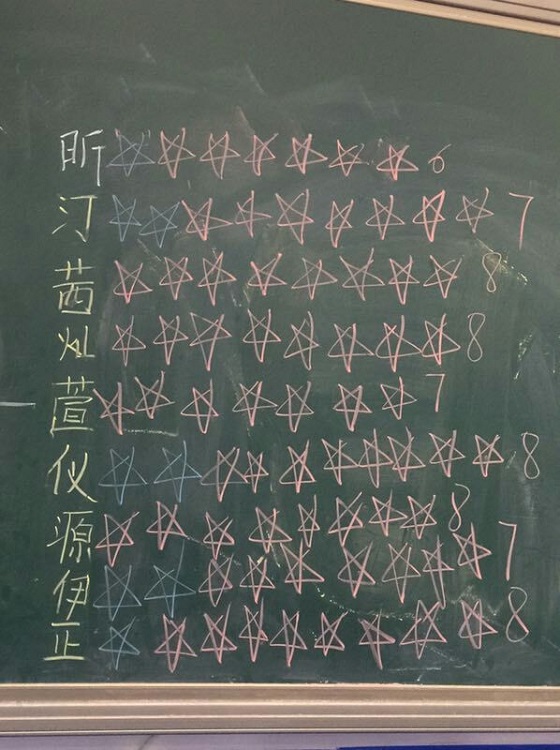 昕 6
汀 7
茜 8
灿 8
萱 7
仪 8
源 8
伊 7
正 8